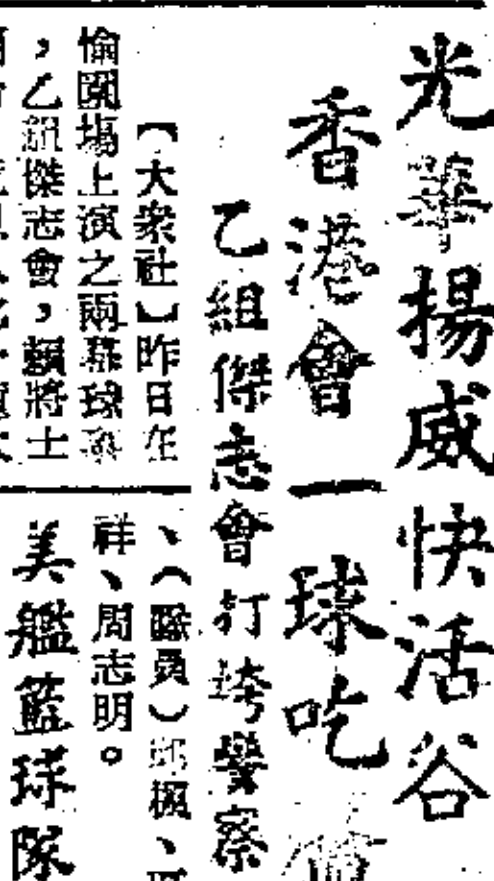 光華揚威快活谷
香港會一球吃
乙組傑志會打垮警察
【大衆社】昨日在
愉園塲上演之兩幕球賽
,乙組傑志會,賴將士
、(隊員)
祥、周志明。
美艦籃球隊